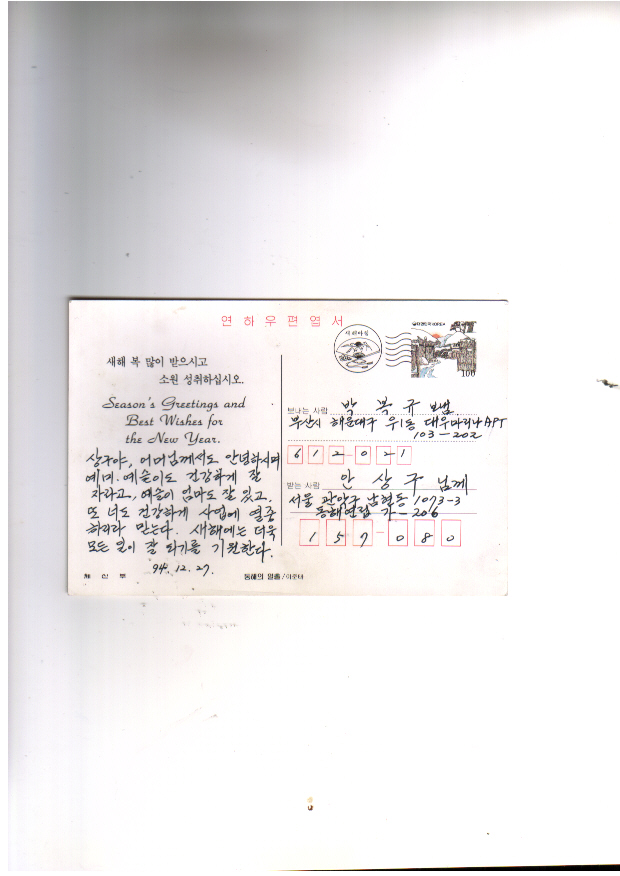 연하우편엽서
새해아침
대한민국 KOREA
100
새해 복 많이 받으시고
소원 성취하십시오.
Season's Greetings and
Best Wishes for
the New Year.
상구야, 어머님께서도 안녕하시며
예미, 예슬이도 건강하게 잘
자라고, 예슬이 엄마도 잘 있고.
또 너도 건강하게 사업에 열중
하리라 믿는다. 새해에는 더욱
모든 일이 잘 되기를 기원한다.
94. 12. 27.
체신부
동해의 일출/이종태
보내는 사람 박복규 보냄
부산시 해운대구 우1동 대우마리나 APT
103-202
612-021
받는 사람 안상구 님께
서울 관악구 남현동 1073-3
동해연립 가-206
157-080